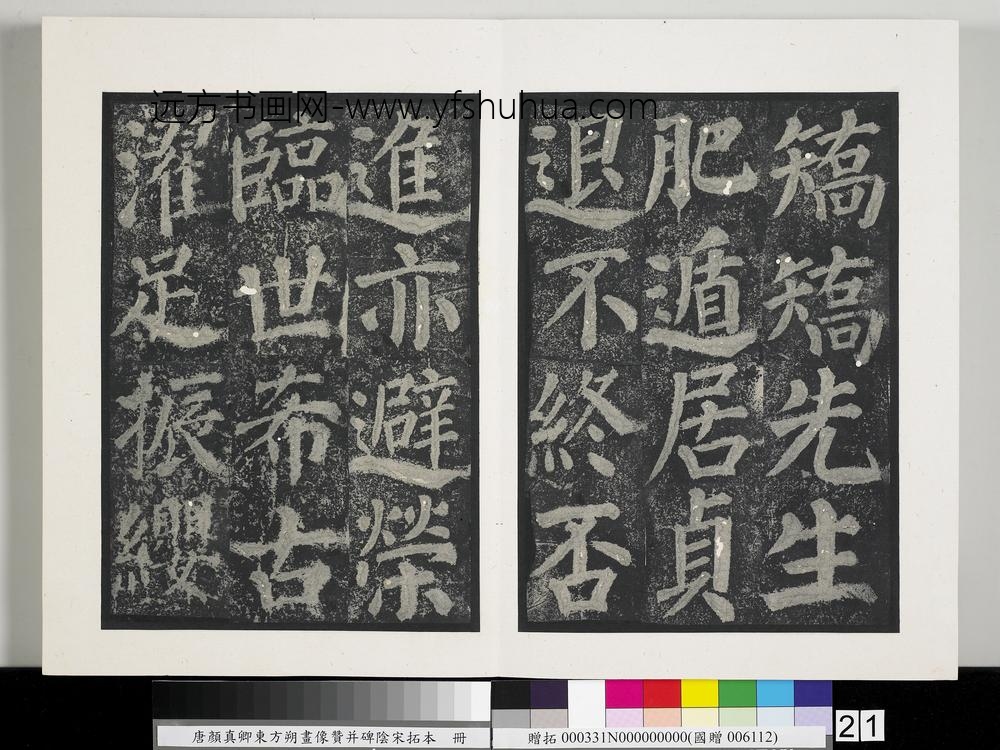 远方书画网-www.yfshuhua.com
矯矯先生
肥遁居貞
退不終否
進亦避榮
臨世希古
濯足振纓
唐顏真卿東方朔畫像贊并碑陰宋拓本 冊
贈拓 000331N000000000(國贈 006112)
21